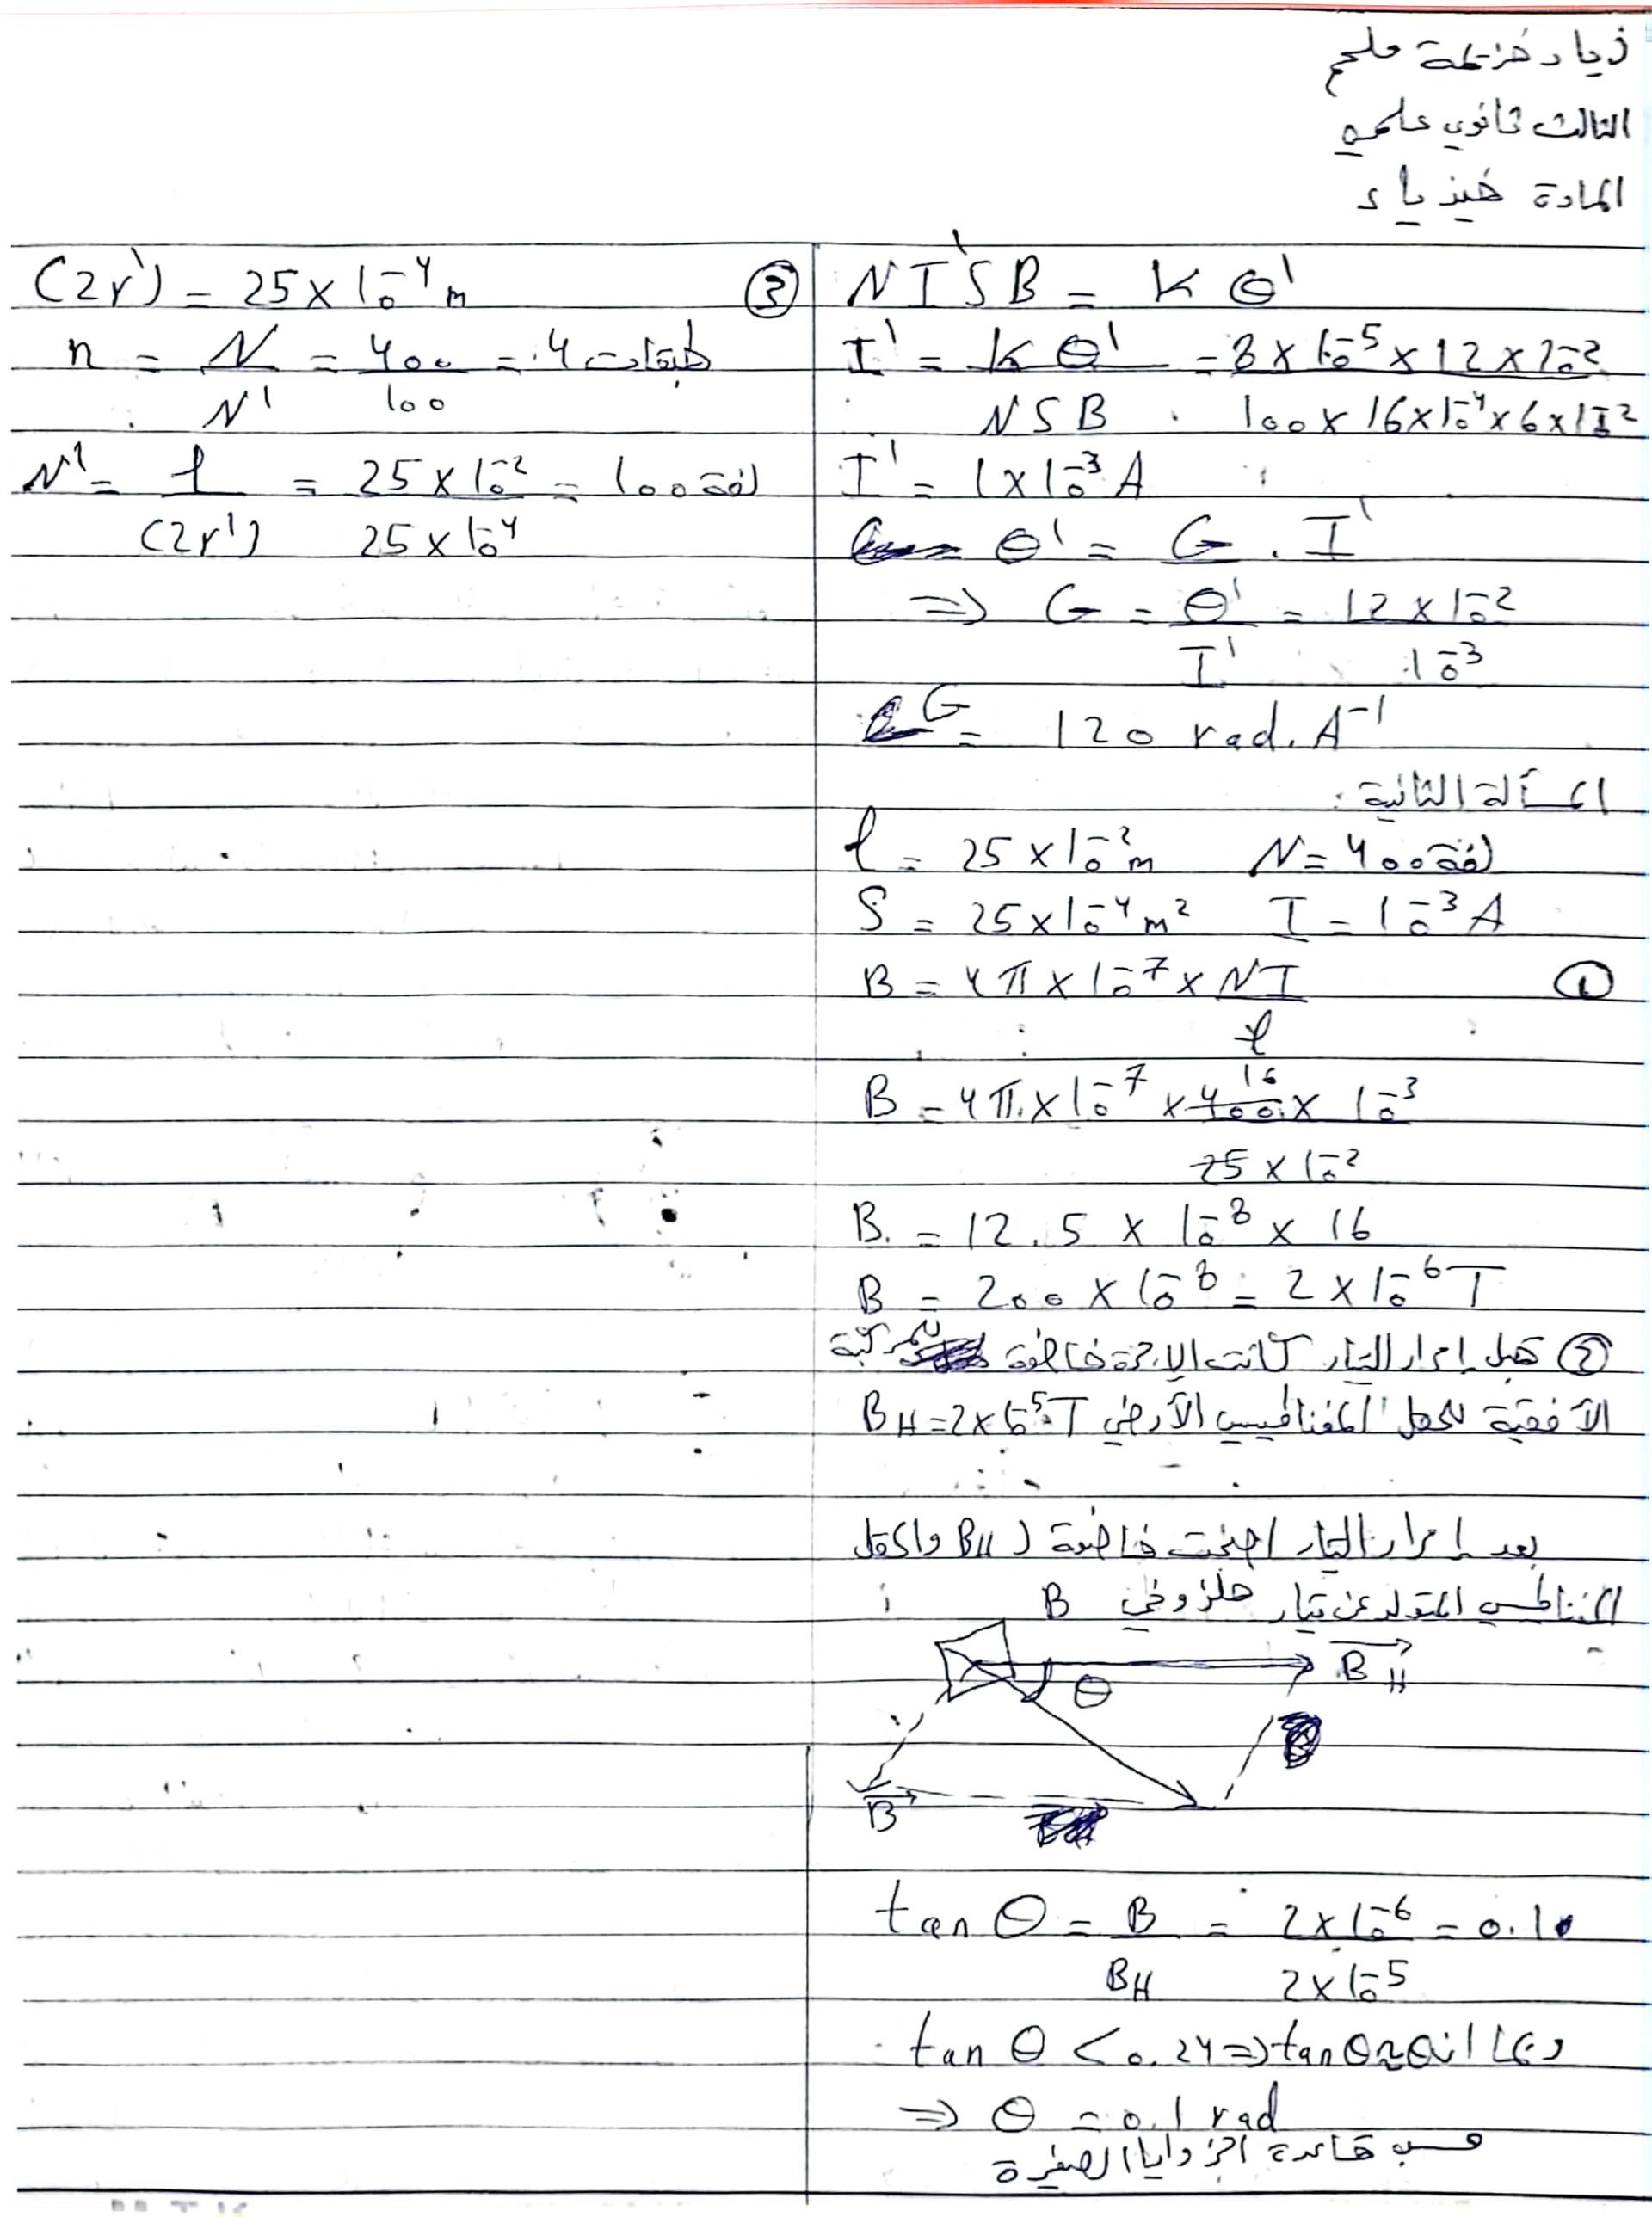 زياد خزيمة ملحم
الثالث ثانوي علمي
المادة فيزياء
N I' S B = K θ'
I' = K θ' / N S B = 8 × 10⁻⁵ × 12 × 10⁻² / 100 × 16 × 10⁻⁴ × 6 × 10⁻²
I' = 1 × 10⁻³ A
θ' = G . I'
⇒ G = θ' / I' = 12 × 10⁻² / 10⁻³
G = 120 rad. A⁻¹
المسألة الثانية:
ℓ = 25 × 10⁻² m N = 400 لفة
S = 25 × 10⁻⁴ m² I = 10⁻³ A
① B = 4π × 10⁻⁷ × N I / ℓ
B = 4π × 10⁻⁷ × 400 × 10⁻³ / 25 × 10⁻²
16
B = 12.5 × 10⁻⁸ × 16
B = 200 × 10⁻⁸ = 2 × 10⁻⁶ T
② قبل إمرار التيار كانت الإبرة خاضعة للمركبة
الأفقية للحقل المغناطيسي الأرضي B_H = 2 × 10⁻⁵ T
بعد إمرار التيار أصبحت خاضعة ل B_H والحقل
المغناطيسي المتولد عن تيار حلزوني B
B_H
θ
B
tan θ = B / B_H = 2 × 10⁻⁶ / 2 × 10⁻⁵ = 0.1
وبما ان tan θ < 0.24 ⇒ tan θ ≈ θ
⇒ θ = 0.1 rad
حسب قاعدة الزوايا الصغيرة
③ (2r') = 25 × 10⁻⁴ m
n = N / N' = 400 / 100 = 4 طبقات
N' = ℓ / (2r') = 25 × 10⁻² / 25 × 10⁻⁴ = 100 لفة